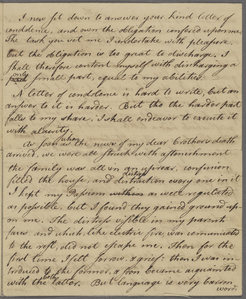 I now sit down to answer your kind letter of
condolence, and own the obligation conferred upon me.
The task you set me I undertake with pleasure.
But the obligation is too great to discharge. I
shall therefore content myself with discharging a
only
small part, equal to my abilities.
A letter of condolence is hard to write, but an
answer to it is harder. But tho the harder part
falls to my share, I shall endeavor to execute it
with alacrity.
As soon as the news of my dear brothers death
arrived, we were all struck with astonishment
the family was all in an uproar, confusion
filled the house, and distraction every one in it
I kept my passions within a well regulated
as possible, but I found they gained ground up-
on me. The distress visible in my parents
faces and which like electric fire, was communicated
to the rest, did not escape me. Then for the
first time I felt for woe, & grief: then I was in-
troduced to the former, & soon became acquainted
with the latter. But language is very barren
word